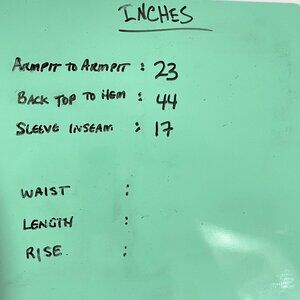 INCHES
ARMPIT TO ARMPIT : 23
BACK TOP TO HEM : 44
SLEEVE INSEAM : 17
WAIST :
LENGTH :
RISE :